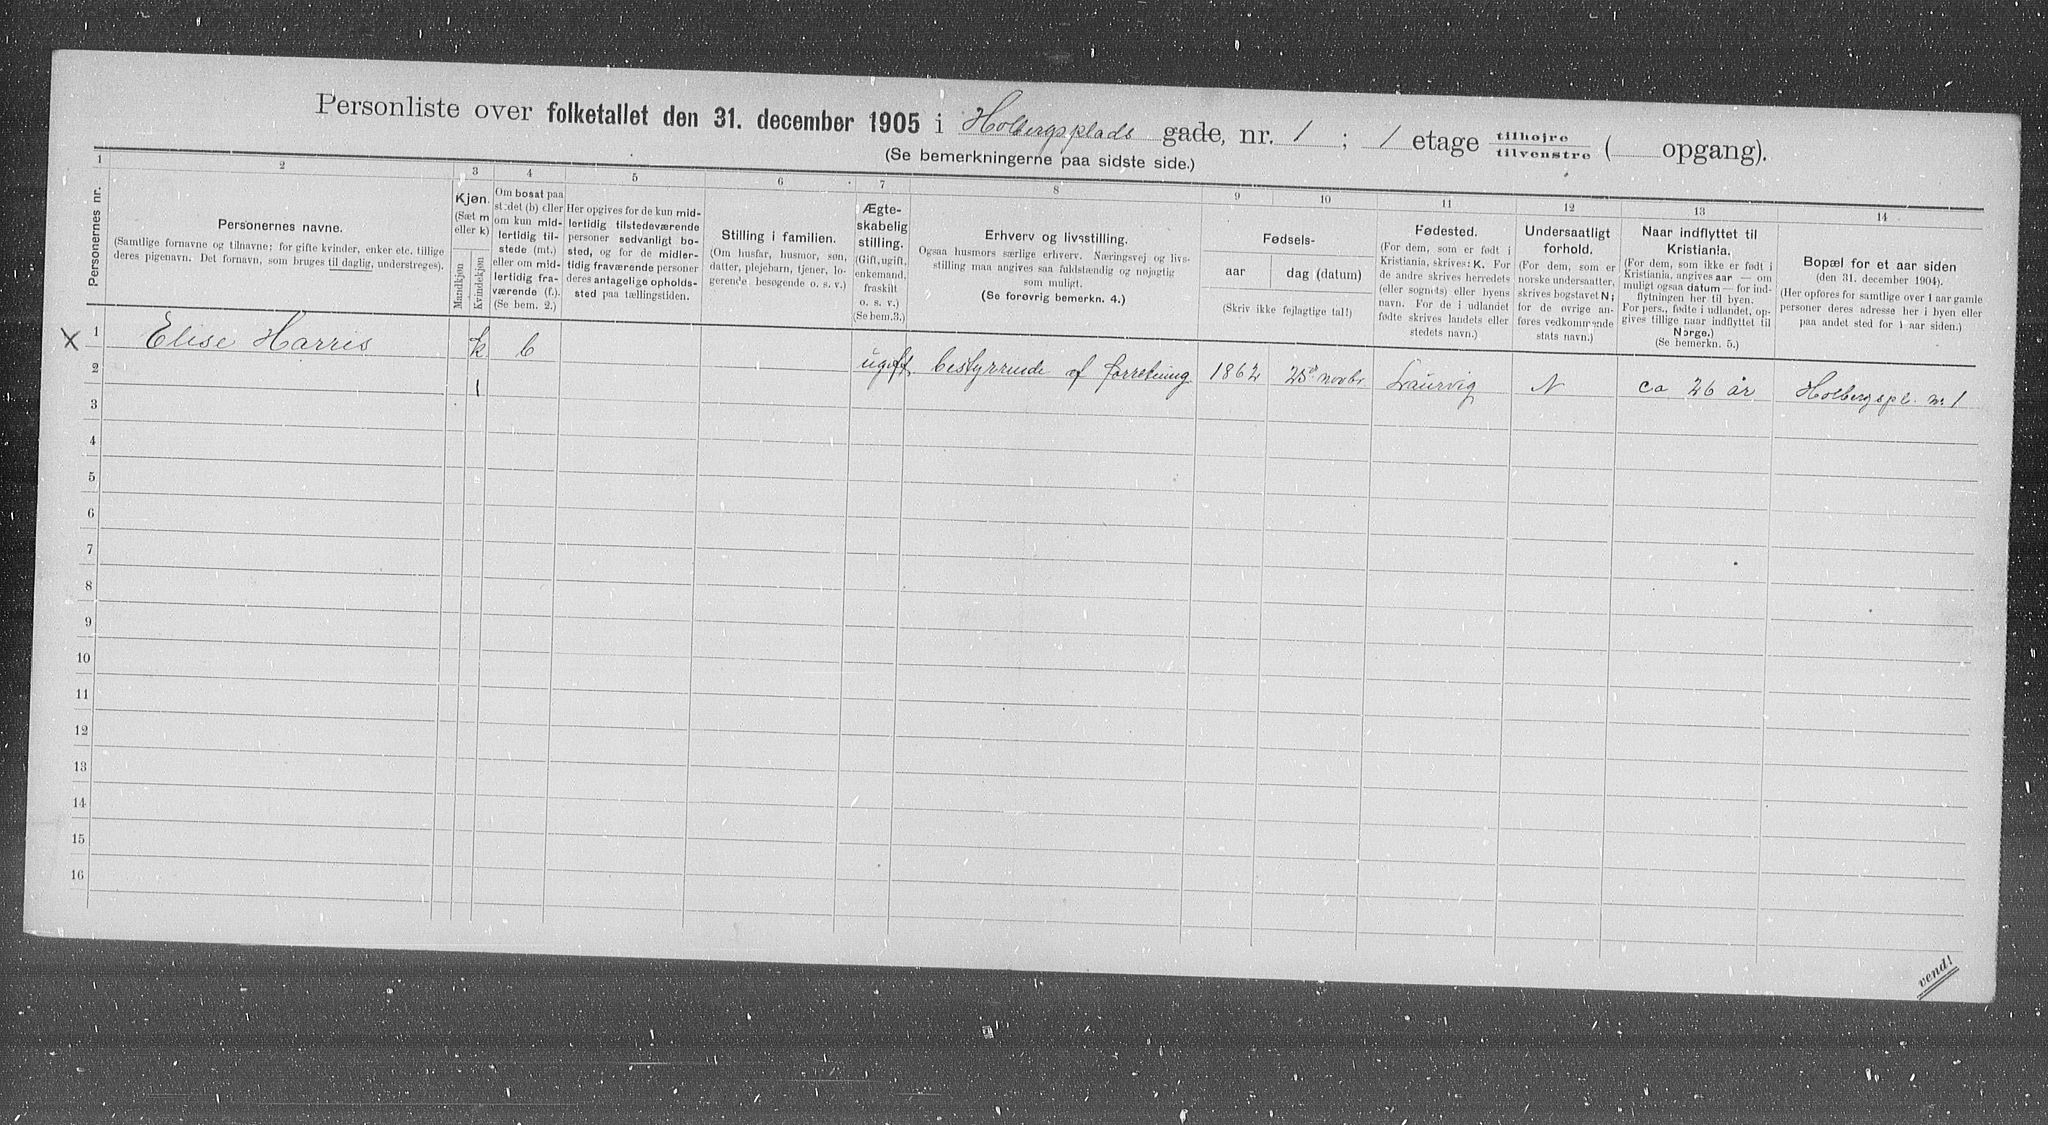 Personliste over folketallet den 31. december 1905 i Holbergsplads gade, nr. 1 ; 1 etage tilhøjre tilvenstre ( opgang).
(Se bemerkningerne paa sidste side.)
1 2 3 4 5 6 7 8 9 10 11 12 13 14
Personernes nr.
Personernes navne.
(Samtlige fornavne og tilnavne; for gifte kvinder, enker etc. tillige
deres pigenavn. Det fornavn, som bruges til daglig, understreges).
Kjøn.
(Sæt m
eller k)
Mandkjøn
Kvindekjøn
Om bosat paa
stedet (b) eller
om kun mid-
lertidig til-
stede (mt.)
eller om mid-
lertidig fra-
værende (f.).
(Se bem. 2.)
Her opgives for de kun mid-
lertidig tilstedeværende
personer sedvanligt bo-
sted, og for de midler-
tidig fraværende personer
deres antagelige opholds-
sted paa tællingstiden.
Stilling i familien.
(Om husfar, husmor, søn,
datter, plejebarn, tjener, lo-
gerende besøgende o. s. v.)
Ægte-
skabelig
stilling.
(Gift, ugift,
enkemand,
fraskilt
o. s. v.)
(Se bem. 3.)
Erhverv og livsstilling.
Ogsaa husmors særlige erhverv. Næringsvej og livs-
stilling maa angives saa fuldstændig og nøjagtig
som muligt.
(Se forøvrig bemerkn. 4.)
Fødsels-
aar
dag (datum)
(Skriv ikke fejlagtige tal!)
Fødested.
(For dem, som er født i
Kristiania, skrives: K. For
de andre skrives herredets
(eller sognets) eller byens
navn. For de i udlandet
fødte skrives landets eller
stedets navn.)
Undersaatligt
forhold.
(For dem, som er
norske undersaatter,
skrives bogstavet N;
for de øvrige an-
føres vedkommende
stats navn.)
Naar indflyttet til
Kristiania.
(For dem, som ikke er født i
Kristiania, angives aar — om
muligt ogsaa datum — for ind-
flytningen her til byen.
For pers., fødte i udlandet, op-
gives tillige naar indflyttet til
Norge.)
(Se bemerkn. 5.)
Bopæl for et aar siden
(den 31. december 1904).
(Her opføres for samtlige over 1 aar gamle
personer deres adresse her i byen eller
paa andet sted for 1 aar siden.)
X 1 Elise Harris k b ugift bestyrende af forretning 1862 25d novbr Laurvig N ca 26 år Holbergspl. nr. 1
2 1
3
4
5
6
7
8
9
10
11
12
13
14
15
16
vend!